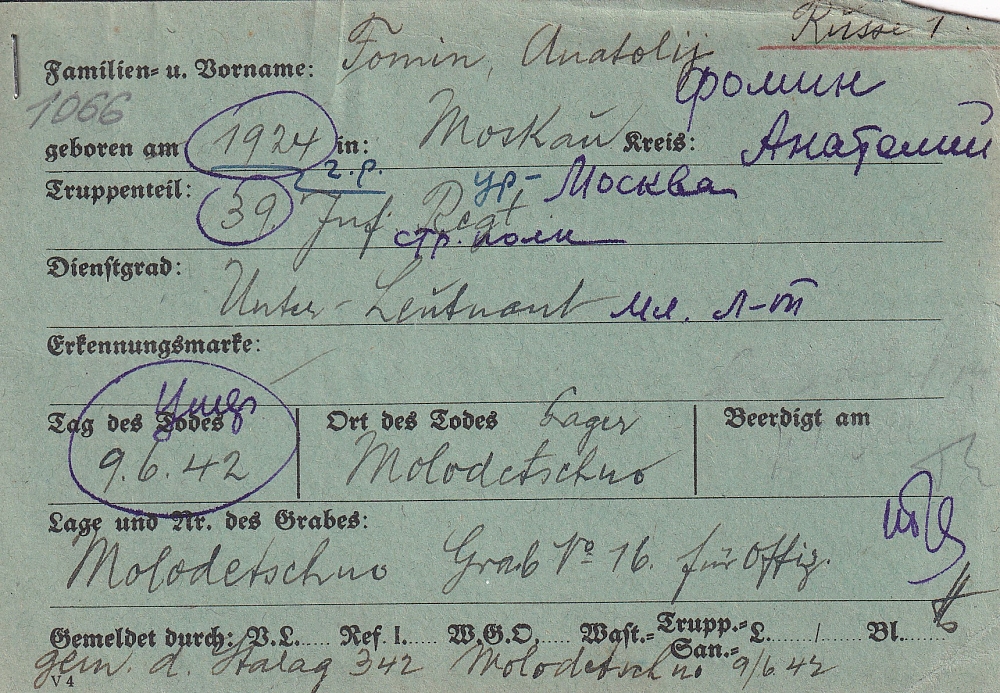 Russe 1.
Familien- u. Vorname: Fomin, Anatolij
Фомин
1066
geboren am 1924 in: Moskau Kreis: Анатолий
г.р. ур- Москва
Truppenteil: 39 Inf. Regt
стр. полк
Dienstgrad:
Unter-Leutnant мл. л-т
Erkennungsmarke:
Умер
Tag des Todes
9.6.42
Ort des Todes Lager
Molodetschno
Beerdigt am
Lage und Nr. des Grabes:
Molodetschno Grab No 16. für Offiz.
Gemeldet durch: V.L..... Ref I..... W.G.O..... Wast.= Trupp.=
San.= L...../..... Bl.....
gem. d. Stalag 342 Molodetschno 9/6.42
V 4